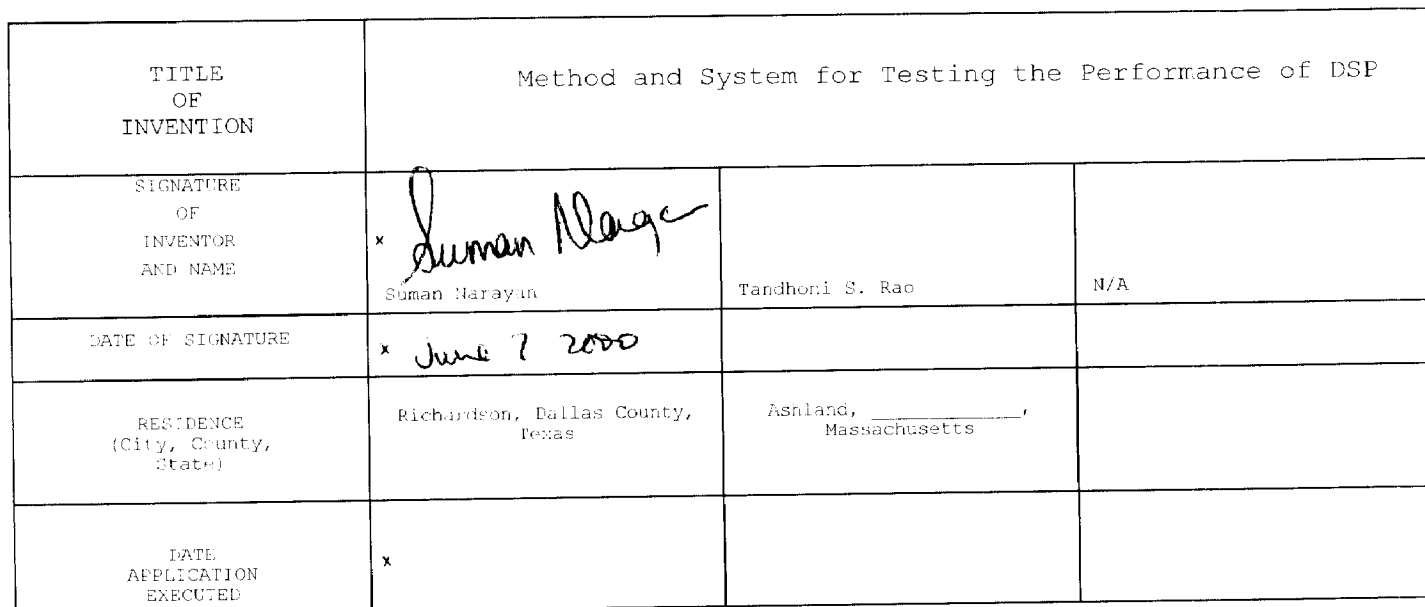 TITLE
OF
INVENTION
Method and System for Testing the Performance of DSP
SIGNATURE
OF
INVENTOR
AND NAME
x Suman Narayan
Suman Narayan
Tandhoni S. Rao
N/A
DATE OF SIGNATURE
x June 7 2000
RESIDENCE
(City, County,
State)
Richardson, Dallas County,
Texas
Ashland, ____________,
Massachusetts
DATE
APPLICATION
EXECUTED
x